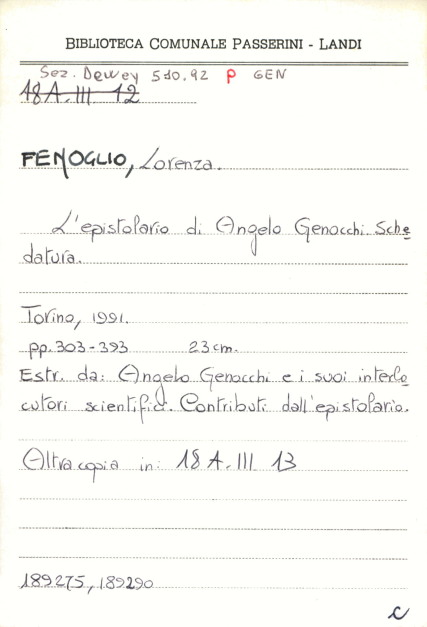 BIBLIOTECA COMUNALE PASSERINI - LANDI
Sez. Dewey 510.92 P GEN
18A.III 12
FENOGLIO, Lorenza.
L'epistolario di Angelo Genocchi. Sche
datura.
Torino, 1991.
pp. 303-393 23 cm.
Estr. da: Angelo Genocchi e i suoi interlo
cutori scientifici. Contributi dall'epistolario.
Altra copia in: 18 A. III 13
189275, 189290
C